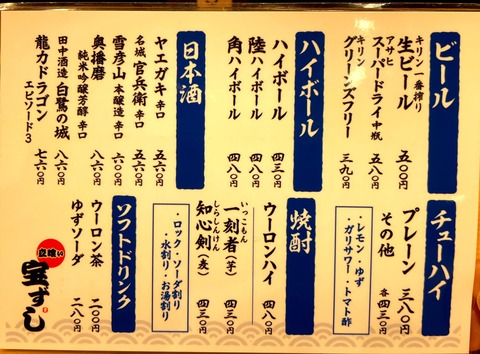 ビール
キリン 一番搾り
生ビール 五〇〇円
アサヒ
スーパードライ 中瓶 五八〇円
キリン
グリーンズフリー 三九〇円
ハイボール
ハイボール 四三〇円
陸ハイボール 四八〇円
角ハイボール 四八〇円
日本酒
ヤエガキ 辛口 五六〇円
名城 官兵衛 辛口 五六〇円
雪彦山 本醸造 辛口 六〇〇円
奥播磨 純米吟醸芳醇 辛口 八六〇円
田中酒造 白鷺の城 八六〇円
龍力ドラゴン エピソード3 七六〇円
チューハイ
プレーン 三八〇円
その他 各四三〇円
・レモン・ゆず
・ガリサワー・トマト酢
焼酎
ウーロンハイ 四三〇円
いっこもん
一刻者(芋) 四八〇円
しらしんけん
知心剣(麦) 四三〇円
・ロック・ソーダ割り
・水割り・お湯割り
ソフトドリンク
ウーロン茶 二〇〇円
ゆずソーダ 二八〇円
立喰い
宝ずし